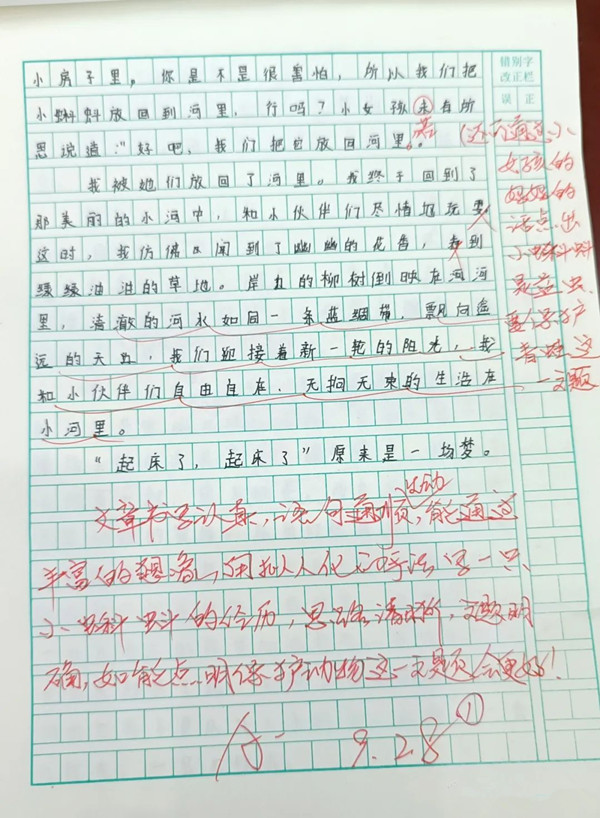 错别字
改正栏
误 正
小房子里，你是不是很害怕，所以我们把
小蝌蚪放回到河里，行吗？小女孩未有所
若
思说道："好吧，我们把它放回河里。
我被她们放回了河里。我终于回到了
那美丽的小河中，和小伙伴们尽情地玩耍
这时，我仿佛又闻到了幽幽的花香，看到
绿绿油油的草地。岸边的柳树倒映在河河
里，清澈的河水如同一条蓝绸带，飘向遥
远的天边，我们迎接着新一轮的阳光，我
和小伙伴们自由自在、无拘无束的生活在
小河里。
"起床了，起床了"原来是一场梦。
(还可通过小
女孩的
妈妈的
话点出
小蝌蚪
是益虫，
要保护
青蛙这
一主题
生动
文章书写认真，语句通顺，能通过
丰富的想象，用拟人化的手法写一只
小蝌蚪的经历，思路清晰，主题明
确，如能点明保护动物这一主题会更好！
A- 9.28 ①